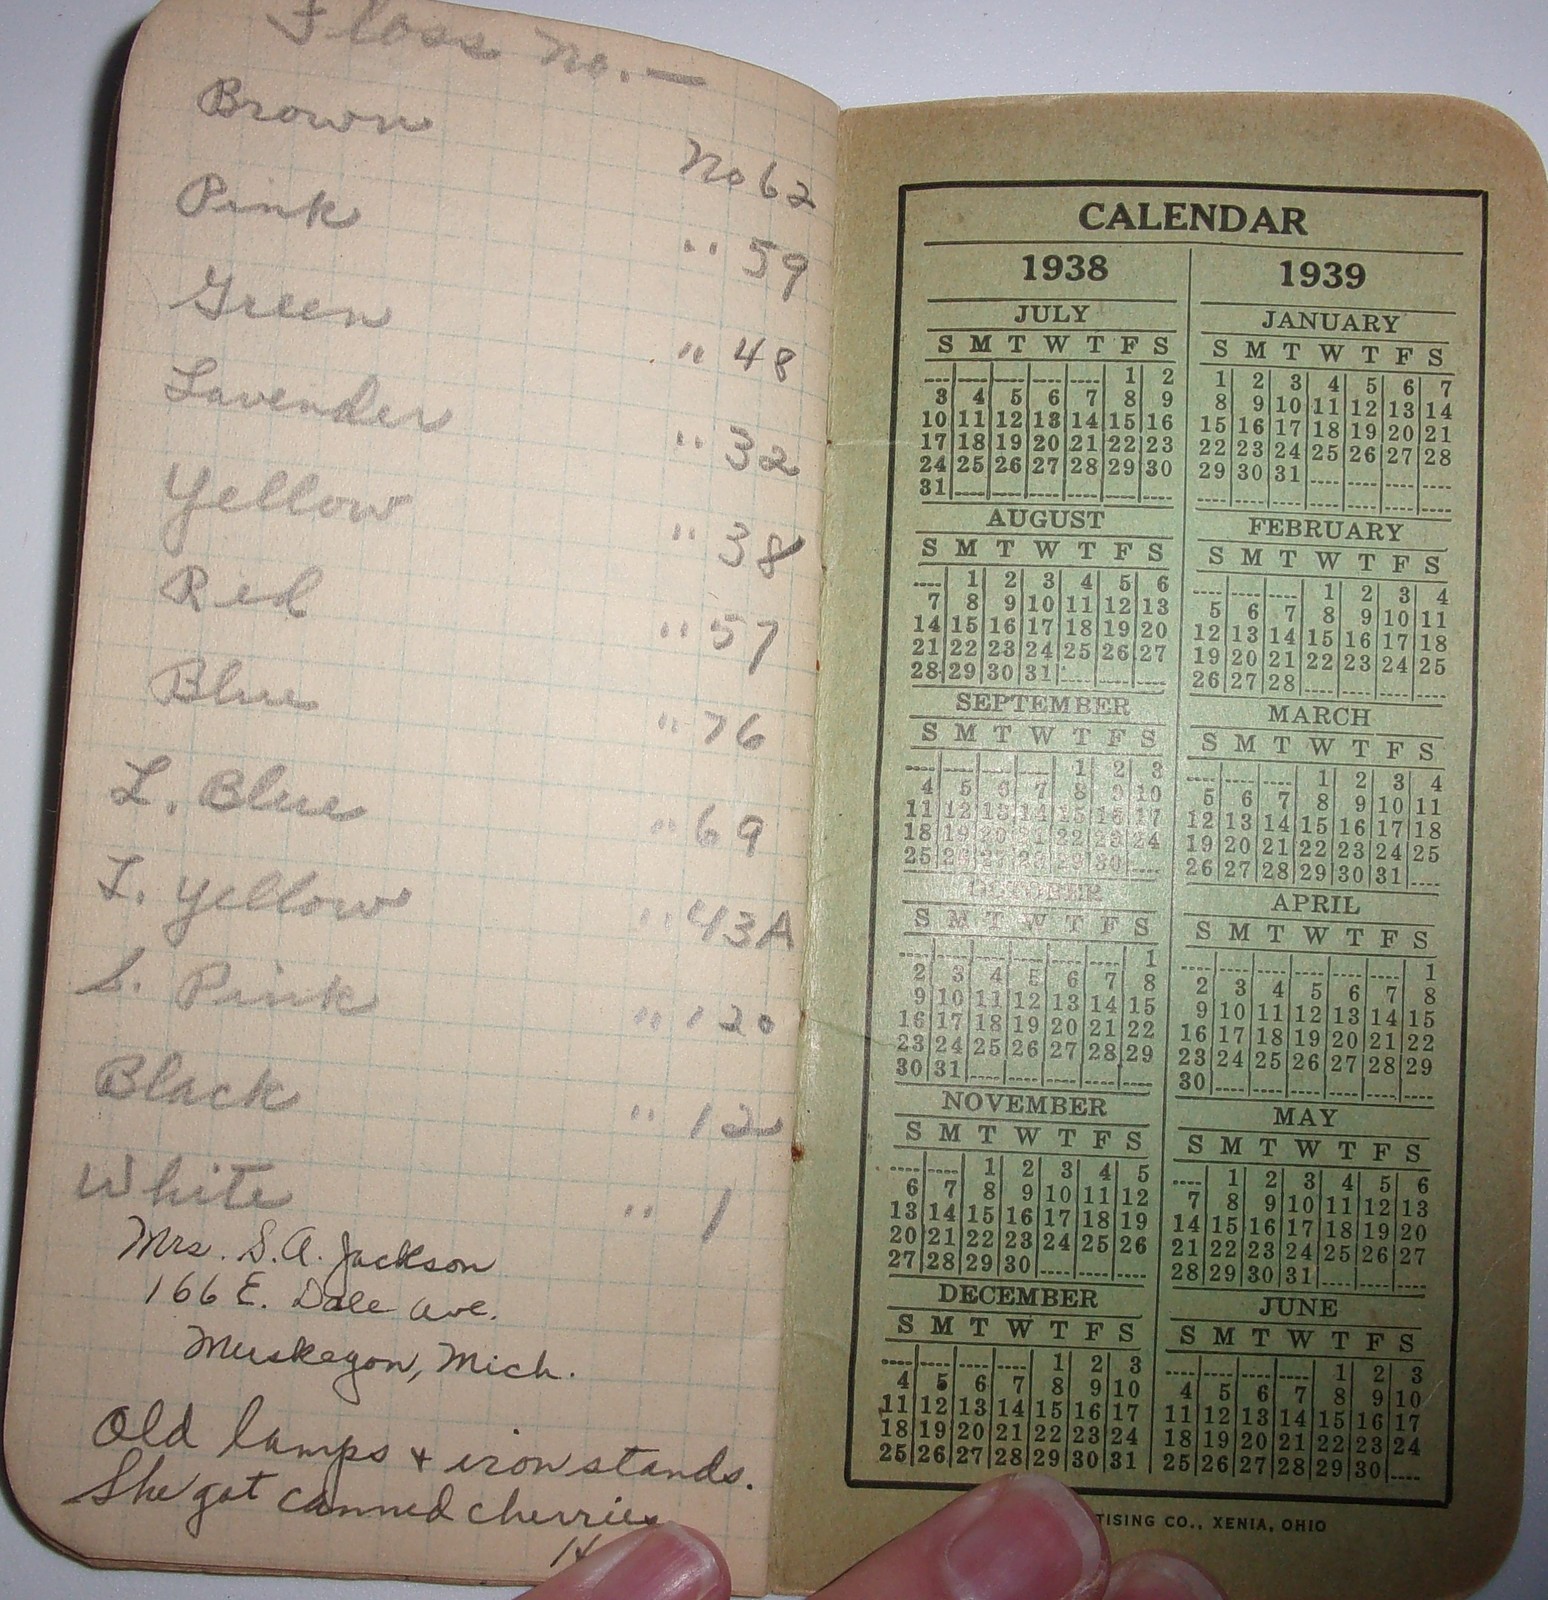 Floss No. —
Brown No 62
Pink " 59
Green " 48
Lavender " 32
Yellow " 38
Red " 57
Blue " 76
L. Blue " 69
L. Yellow " 43A
S. Pink " 120
Black " 12
White " 1
Mrs. S. A. Jackson
166 E. Dale Ave.
Muskegon, Mich.
Old lamps + iron stands.
She got canned cherries
14
CALENDAR
1938
JULY
S M T W T F S
1 2
3 4 5 6 7 8 9
10 11 12 13 14 15 16
17 18 19 20 21 22 23
24 25 26 27 28 29 30
31
AUGUST
S M T W T F S
1 2 3 4 5 6
7 8 9 10 11 12 13
14 15 16 17 18 19 20
21 22 23 24 25 26 27
28 29 30 31
SEPTEMBER
S M T W T F S
1 2 3
4 5 6 7 8 9 10
11 12 13 14 15 16 17
18 19 20 21 22 23 24
25 26 27 28 29 30
OCTOBER
S M T W T F S
1
2 3 4 5 6 7 8
9 10 11 12 13 14 15
16 17 18 19 20 21 22
23 24 25 26 27 28 29
30 31
NOVEMBER
S M T W T F S
1 2 3 4 5
6 7 8 9 10 11 12
13 14 15 16 17 18 19
20 21 22 23 24 25 26
27 28 29 30
DECEMBER
S M T W T F S
1 2 3
4 5 6 7 8 9 10
11 12 13 14 15 16 17
18 19 20 21 22 23 24
25 26 27 28 29 30 31
1939
JANUARY
S M T W T F S
1 2 3 4 5 6 7
8 9 10 11 12 13 14
15 16 17 18 19 20 21
22 23 24 25 26 27 28
29 30 31
FEBRUARY
S M T W T F S
1 2 3 4
5 6 7 8 9 10 11
12 13 14 15 16 17 18
19 20 21 22 23 24 25
26 27 28
MARCH
S M T W T F S
1 2 3 4
5 6 7 8 9 10 11
12 13 14 15 16 17 18
19 20 21 22 23 24 25
26 27 28 29 30 31
APRIL
S M T W T F S
1
2 3 4 5 6 7 8
9 10 11 12 13 14 15
16 17 18 19 20 21 22
23 24 25 26 27 28 29
30
MAY
S M T W T F S
1 2 3 4 5 6
7 8 9 10 11 12 13
14 15 16 17 18 19 20
21 22 23 24 25 26 27
28 29 30 31
JUNE
S M T W T F S
1 2 3
4 5 6 7 8 9 10
11 12 13 14 15 16 17
18 19 20 21 22 23 24
25 26 27 28 29 30
TISING CO., XENIA, OHIO